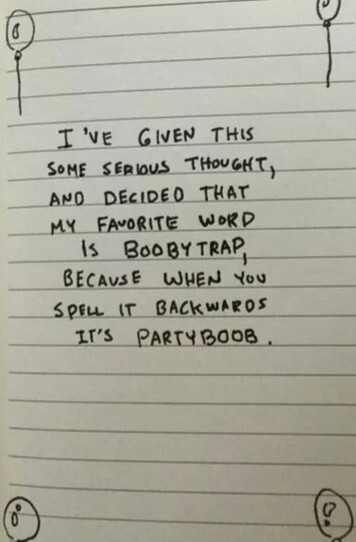 I'VE GIVEN THIS
SOME SERIOUS THOUGHT,
AND DECIDED THAT
MY FAVORITE WORD
IS BOOBYTRAP,
BECAUSE WHEN YOU
SPELL IT BACKWARDS
IT'S PARTYBOOB.